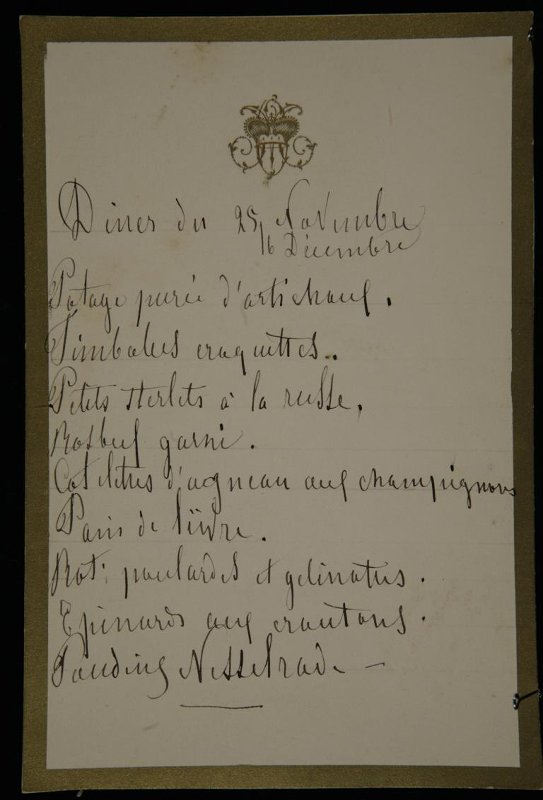 Diner du 25 Novembre
/6 Décembre
Potage purée d'artichaux.
Timbales craquettes..
Petits sterlets à la russe.
Rosbeuf garni.
Cotelettes d'agneau aux champignons
Pain de lièvre.
Rot: poulardes et gelinotus.
Epinards aux croutons.
Pouding Nesselrode —